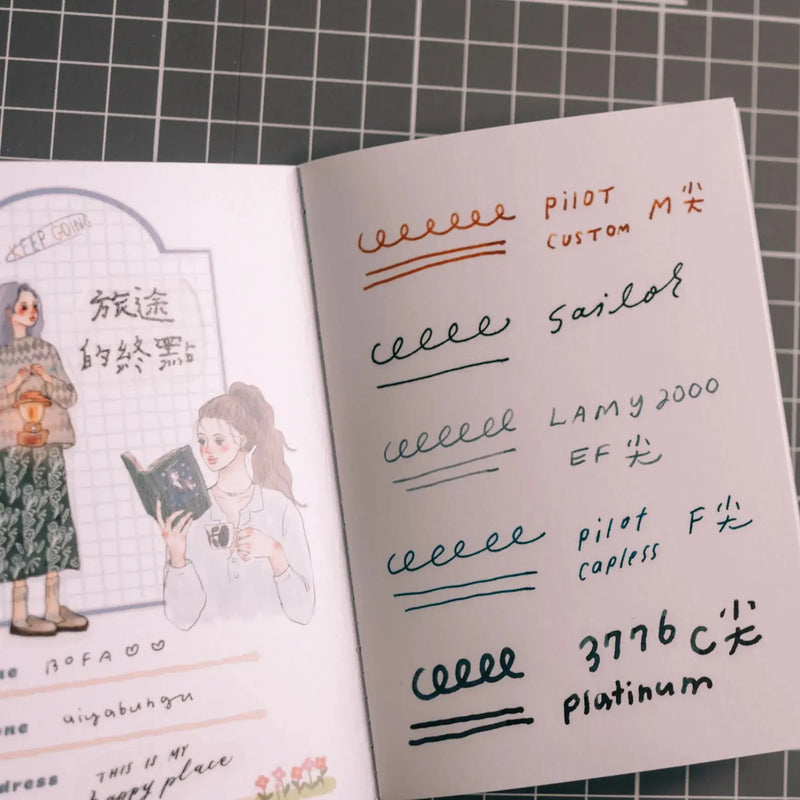 KEEP GOING
旅途
的終點
ne BOFA ♡ ♡
one aiyabungu
dress THIS IS MY
happy place
PILOT
CUSTOM M尖
Sailor
LAMY 2000
EF 尖
pilot F尖
capless
3776 C尖
platinum